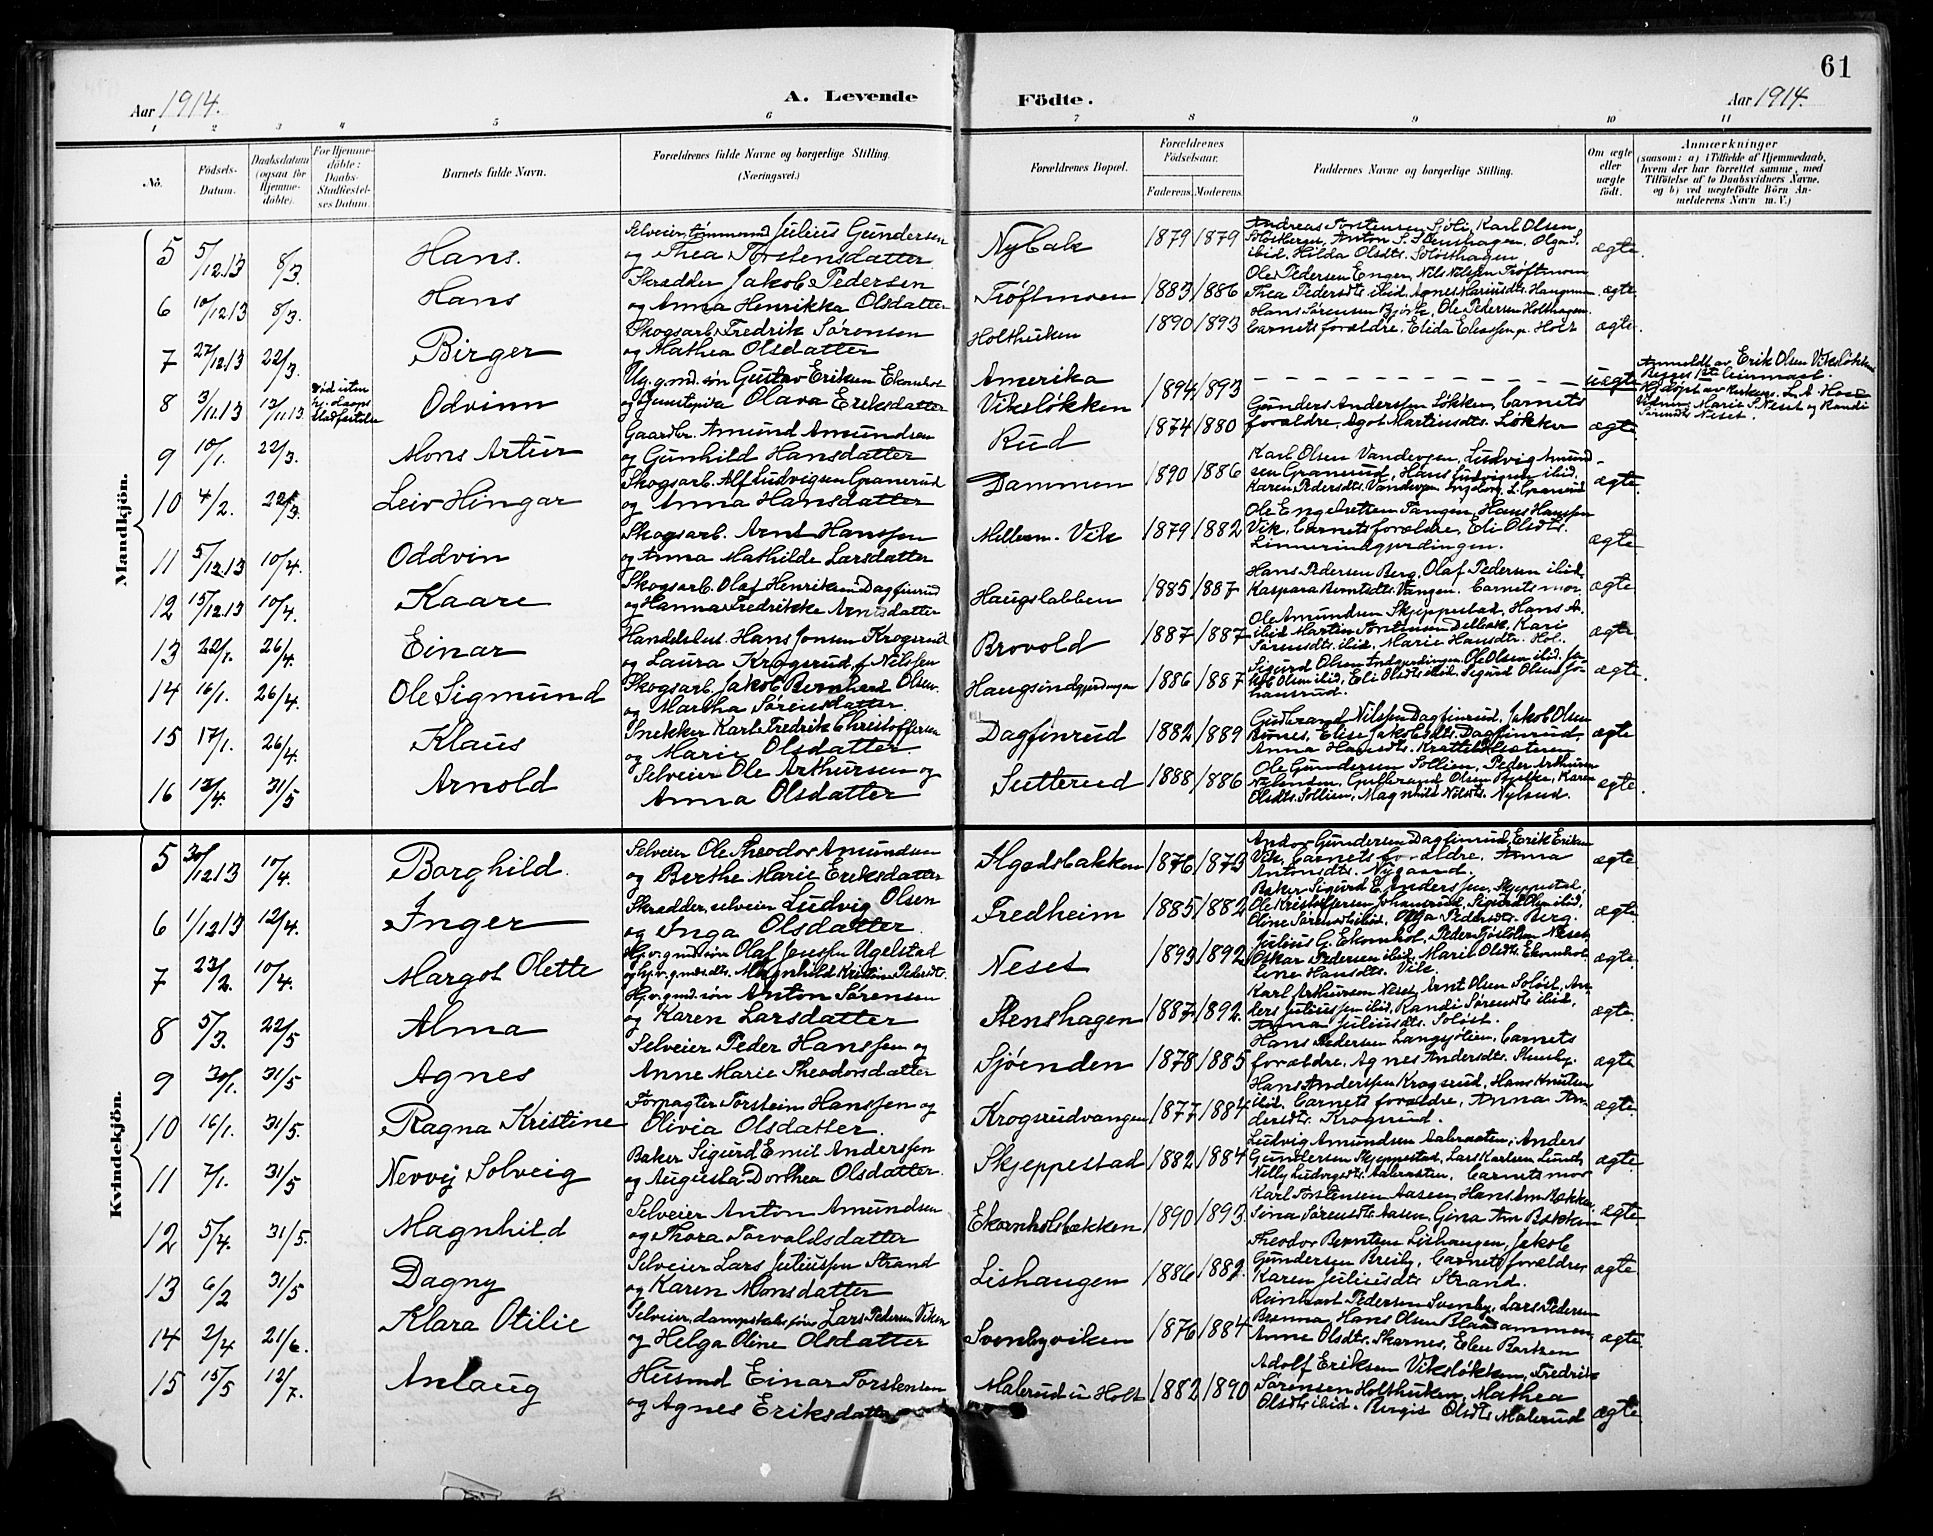 61
Aar 1914. A. Levende Födte. Aar 1914.
1 2 3 4 5 6 7 8 9 10 11
No.
Födsels-Datum.
Daabsdatum (ogsaa for Hjemmedöbte).
For Hjemmedöbte: Daabs-Stadfæstelses Datum.
Barnets fulde Navn.
Forældrenes fulde Navne og borgerlige Stilling. (Næringsvei.)
Forældrenes Bopæl.
Forældrenes Födselsaar.
Faderens. Moderens.
Faddernes Navne og borgerlige Stilling.
Om ægte eller uægte födt.
Anmærkninger
(saasom: a) i Tilfælde af Hjemmedaab, hvem der har forrettet samme, med Tilföielse af to Daabsvidners Navne, og b) ved uægtefödte Börn Anmelderens Navn m. V.)
Mandkjön.
5 5/12.13 8/3. Hans. Selveier, tømmermand Julius Gundersen
og Thea Torstensdatter Nybak 1879 1879 Andreas Torstensen Sjøli, Karl Olsen
Anton S. Stenshagen, Olga S.
ibid, Hilda Olsdts. ægte.
6 10/12.13 8/3. Hans Skrædder Jakob Pedersen
og Anna Henrikka Olsdatter Trøftmoen 1883 1886 Ole Pedersen Enger, Nils Nilssen Trøftmoen
Thea Pedersdts ibid, Agnes ægte
7 27/12.13 22/3. Birger Skogsarb. Fredrik Sørensen
og Mathea Olsdatter Holthuken 1890 1893 Hans Sørensen Bjørk, Ole Pedersen Holthagen
barnets forældre, Elida ægte
8 3/11.13 12/11.13 Odvinn Ug. g.md. søn Gustav Eriksen Ekornhol
og Olava Eriksdatter Amerika
Viksløkken 1894 1893 uægte Anmeldt av Erik Olsen Viksløkken
Marie S. Neset og Randi
Sørensdts Neset.
9 10/1. 22/3. Mons Artur Gaardbr. Amund Amundsen
og Gunhild Hansdatter Rud 1874 1880 Gunders Anderssen Løkken, barnets
forældre, Agot Martinsdts. Løkken ægte
10 4/2. 22/3. Leiv Hingar Skogsarb. Alf Ludvigsen Granerud
og Anna Hansdatter Dammen 1890 1886 Karl Olsen Vandevgen, Ludvig Amund-
sen Granerud, Hans Ludvigsen ibid,
Karen Pedersdts. Vandevgen, Ingeborg L. Granerud ægte.
11 5/12.13 10/4. Oddvin Skogsarb. Arnt Hanssen
og Anna Mathilde Larsdatter Mellem-Vik 1879 1882 Ole Engebretsen Tangen, Hans Hanssen
Vik, barnets forældre, Eli Olsdts.
Linnerindgjerdingen. ægte
12 15/12.13 10/4. Kaare Skogsarb. Olaf Henriksen Dagfinrud
og Hanna Fredrikke Arntsdatter Haugslabben 1885 1887 Hans Pedersen Berg, Olaf Pedersen ibid,
Kaspara Berntsdts. Vangen. barnets mor ægte
13 22/1. 26/4. Einar Handelsbest. Hans Jonsen Krogsrud
og Laura Krogsrud f. Nilssen Brovold 1887 1887 Ole Amundsen Skjeppestad, Hans A.
ibid, Martin Torstensen Delbæk, Kari
Sørensdts. ibid, Marie Hansdts. Hol. ægte
14 16/1. 26/4. Ole Sigmund Skogsarb. Jakob Bernhard Olsen
og Martha Sørensdatter. Haugsindgjerdingen 1886 1887 Sigurd Olsen Indgjerdingen, Ole Olsen ibid, Ja-
kob Olsen ibid, Eli Olsdts ibid, Sigurd Olsen Jo-
hansrud. ægte.
15 17/1. 26/4. Klaus Snekker Karl Fredrik Christoffersen
og Marie Olsdatter Dagfinrud 1882 1889 Gudbrand Nilssen Dagfinrud, Jakob Olsen
Elise Jakobsdts. Dagfinrud,
Anna Hansdts. ægte
16 12/4. 31/5 Arnold Selveier Ole Arthursen og
Anna Olsdatter Sutterud 1888 1886 Ole Gundersen Sollien, Peder Arthursen
Gulbrand Olsen Karen
Olsdts. Sollien, Magnhild Nilsdts. Nylund. ægte.
Kvindekjön.
5 30/12.13 10/4. Borghild. Selveier Ole Theodor Amundsen
og Berthe Marie Eriksdatter Ilgodsbakken 1876 1873 Andor Gundersen Dagfinrud, Erik Eriksen
Vik, barnets forældre, Anna
Antonsdts. Nygaard. ægte.
6 1/12.13 12/4. Inger Skrædder, selveier Ludvig Olsen
og Inga Olsdatter. Fredheim 1885 1882 Baker Sigurd E. Anderssen, Skjeppestad,
Ole Kristoffersen Johansrud, Sigurd Olsen ibid,
Oline Sørensdts ibid, Olga Pedersdts. Berg. ægte.
7 23/2. 10/4. Margot Olette Hj.v. g.md. søn Olaf Jenssen Ugelstad
og hj.v. g.mds.dts. Magnhild Kristine Pedersdt. Neset 1893 1892 Julius G. Ekornhol, Peder Neset,
Oskar Pedersen ibid, Marie Olsdts Ekornhol
Line Hansdts. Vik. ægte.
8 5/3. 22/5 Alma Hj.v. g.md. søn Anton Sørensen
og Karen Larsdatter Stenshagen 1887 1892. Karl Arthursen Neset, Arnt Olsen Soløst, An-
ders Juliussen ibid, Randi Sørensdts ibid,
Anna Juliusdts. Soløst. ægte.
9 30/1. 31/5 Agnes Selveier Peder Hanssen og
Anne Marie Theodorsdatter Sjøenden 1878 1885 Hans Pedersen Langsjølien, barnets
forældre, Agnes Andersdts. Stensby. ægte
10 16/1. 31/5. Ragna Kristine Forpagter Torstein Hanssen og
Olivia Olsdatter. Krogsrudvangen 1877 1884 Hans Anderssen Krogsrud, Hans Knutsen
ibid, barnets forældre, Anna An-
dersdts. Krogsrud. ægte
11 7/1. 31/5 Nevvy Solveig Baker Sigurd Emil Anderssen
og Augusta Dorthea Olsdatter. Skjeppestad 1882 1884 Ludvig Amundsen Aabraaten, Anders
Gundersen Skjeppestad, Lars Karlsen Lund,
Nelly Ludvigsdts. Aabraaten, barnets mor ægte
12 5/4. 31/5. Magnhild Selveier Anton Amundsen
og Thora Torvaldsdatter Ekornholsbækken 1890 1893. Karl Torstensen Aasen, Hans Am. Bækken
Sina Sørensdts Aasen, Gina Am. Bækken ægte
13 6/2 31/5 Dagny Selveier Lars Juliussen Strand
og Karen Monsdatter Lishaugen 1886 1882. Theodor Berntsen Lishaugen, Jakob
Gundersen Breiby, barnets forældre,
Karen Juliusdts Strand. ægte
14 2/4 21/6. Klara Otilie Selveier, dampskibsfører Lars Pedersen Viken
og Helga Oline Olsdatter Svenbyviken 1876 1884 Reinhart Pedersen Svenby, Lars Pedersen
Brenna, Hans Olsen Blaadammen,
Anne Olsdts. Skarnes, Elen Bartsen ægte.
15 15/5 12/7. Anlaug Husmd Einar Torstensen
og Agnes Eriksdatter Malerud u. Holt 1882 1890 Adolf Eriksen Viksløkken, Fredrik
Sørensen Holthuken, Mathea
Olsdts ibid. Bergit Olsdts Malerud ægte.